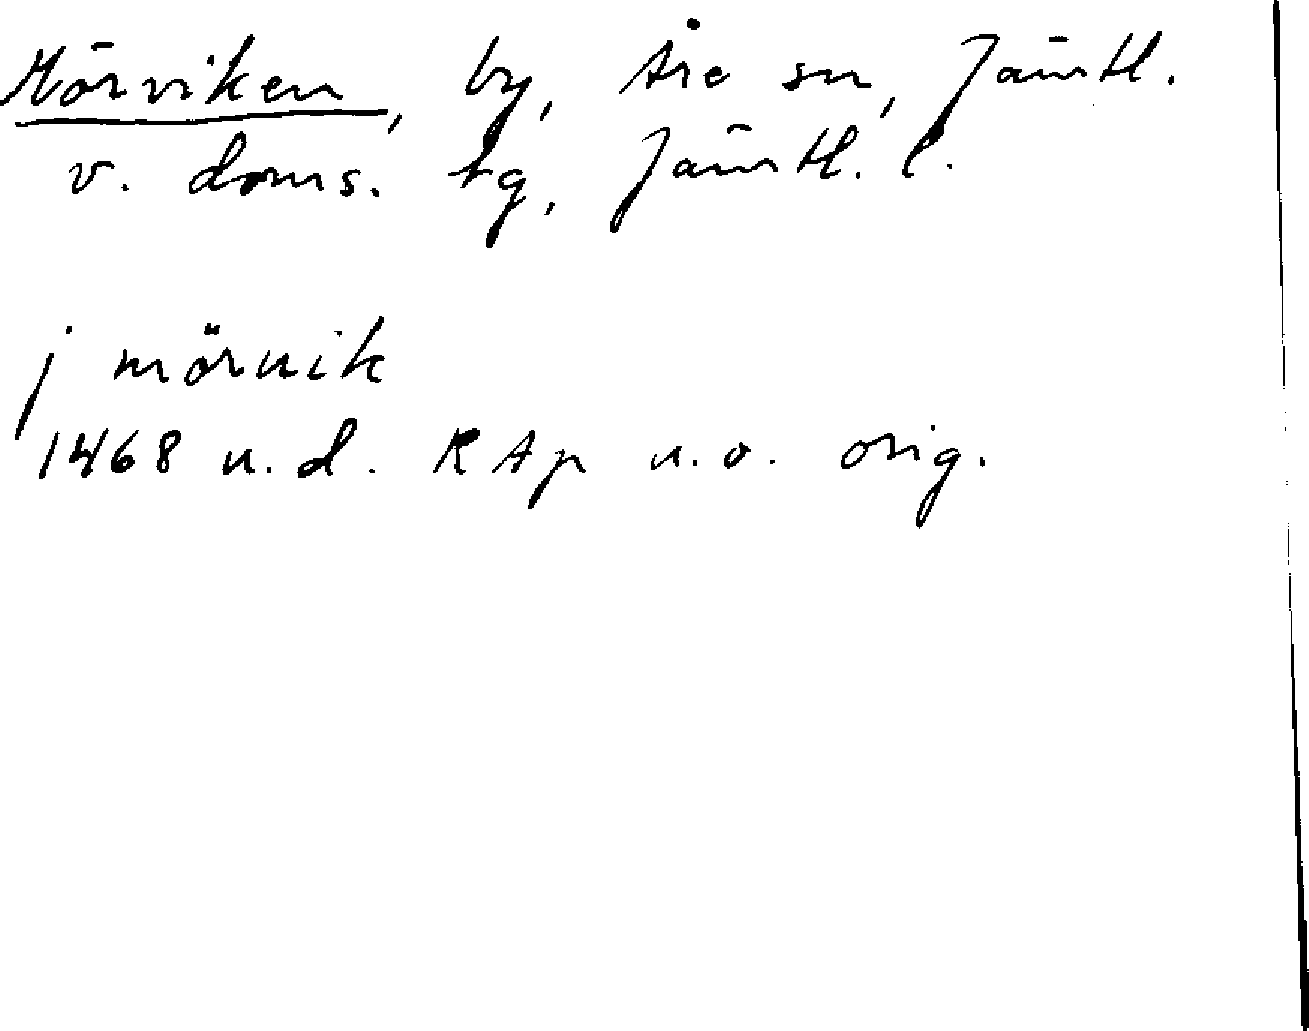 Mörviken, by, Åre sn, Jämtl.
v. doms. tg, Jämtl. l.
j möruik
1468 u.d. RAp u.o. orig.